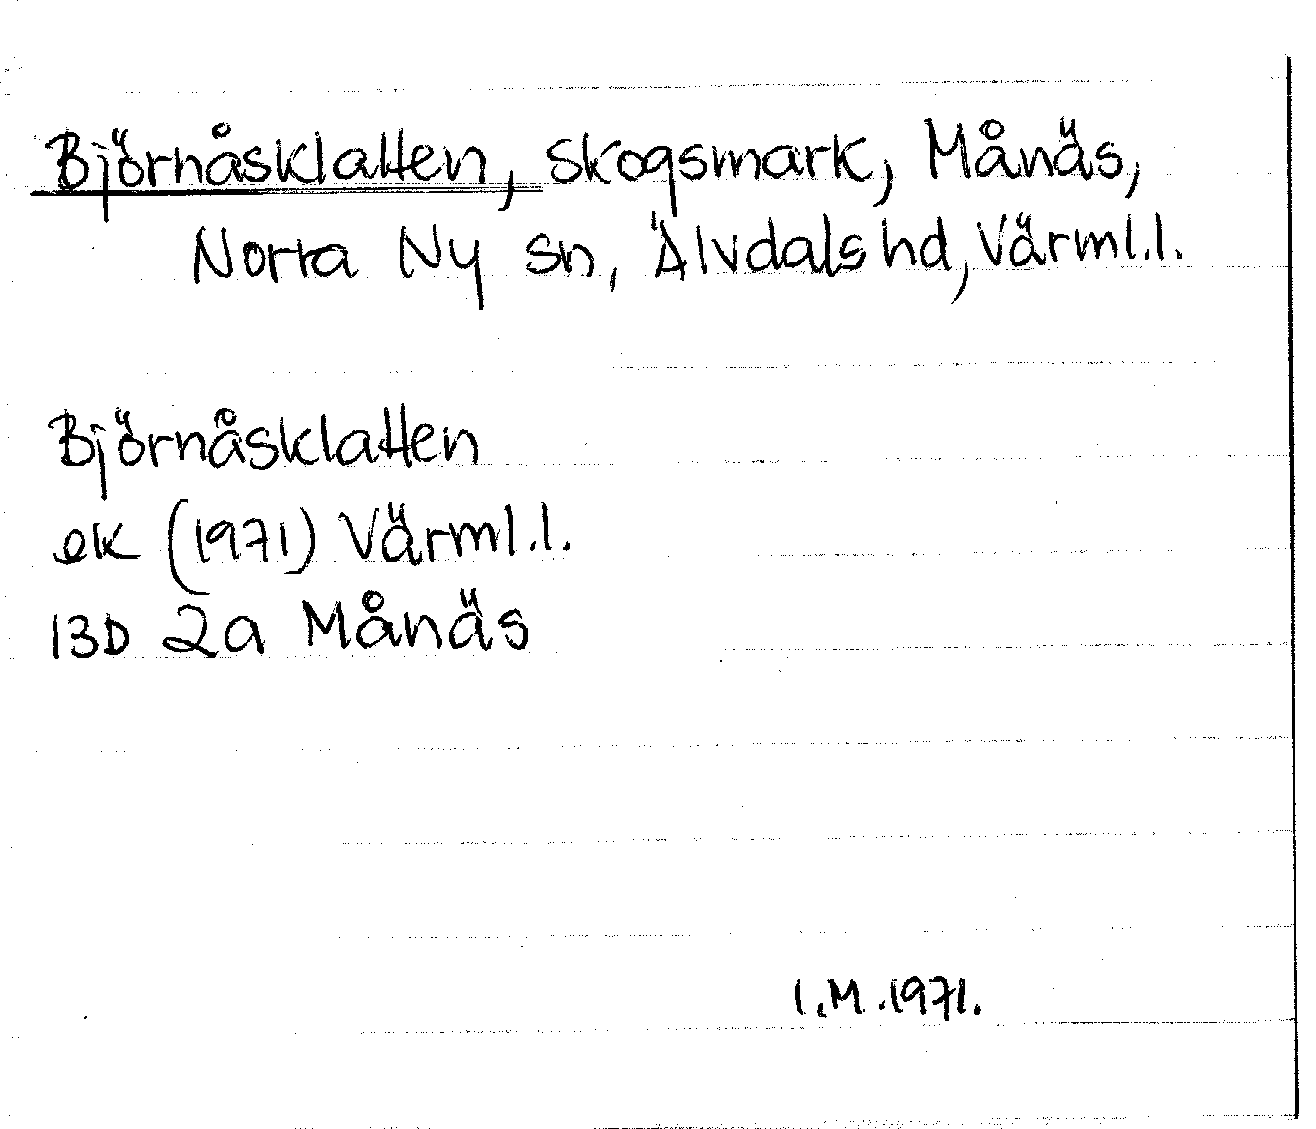 Björnåsklatten, skogsmark, Månäs,
Norra Ny sn, Älvdals hd, Värml.l.
Björnåsklatten
ek (1971) Värml.l.
13D 2a Månäs
I.M.1971.